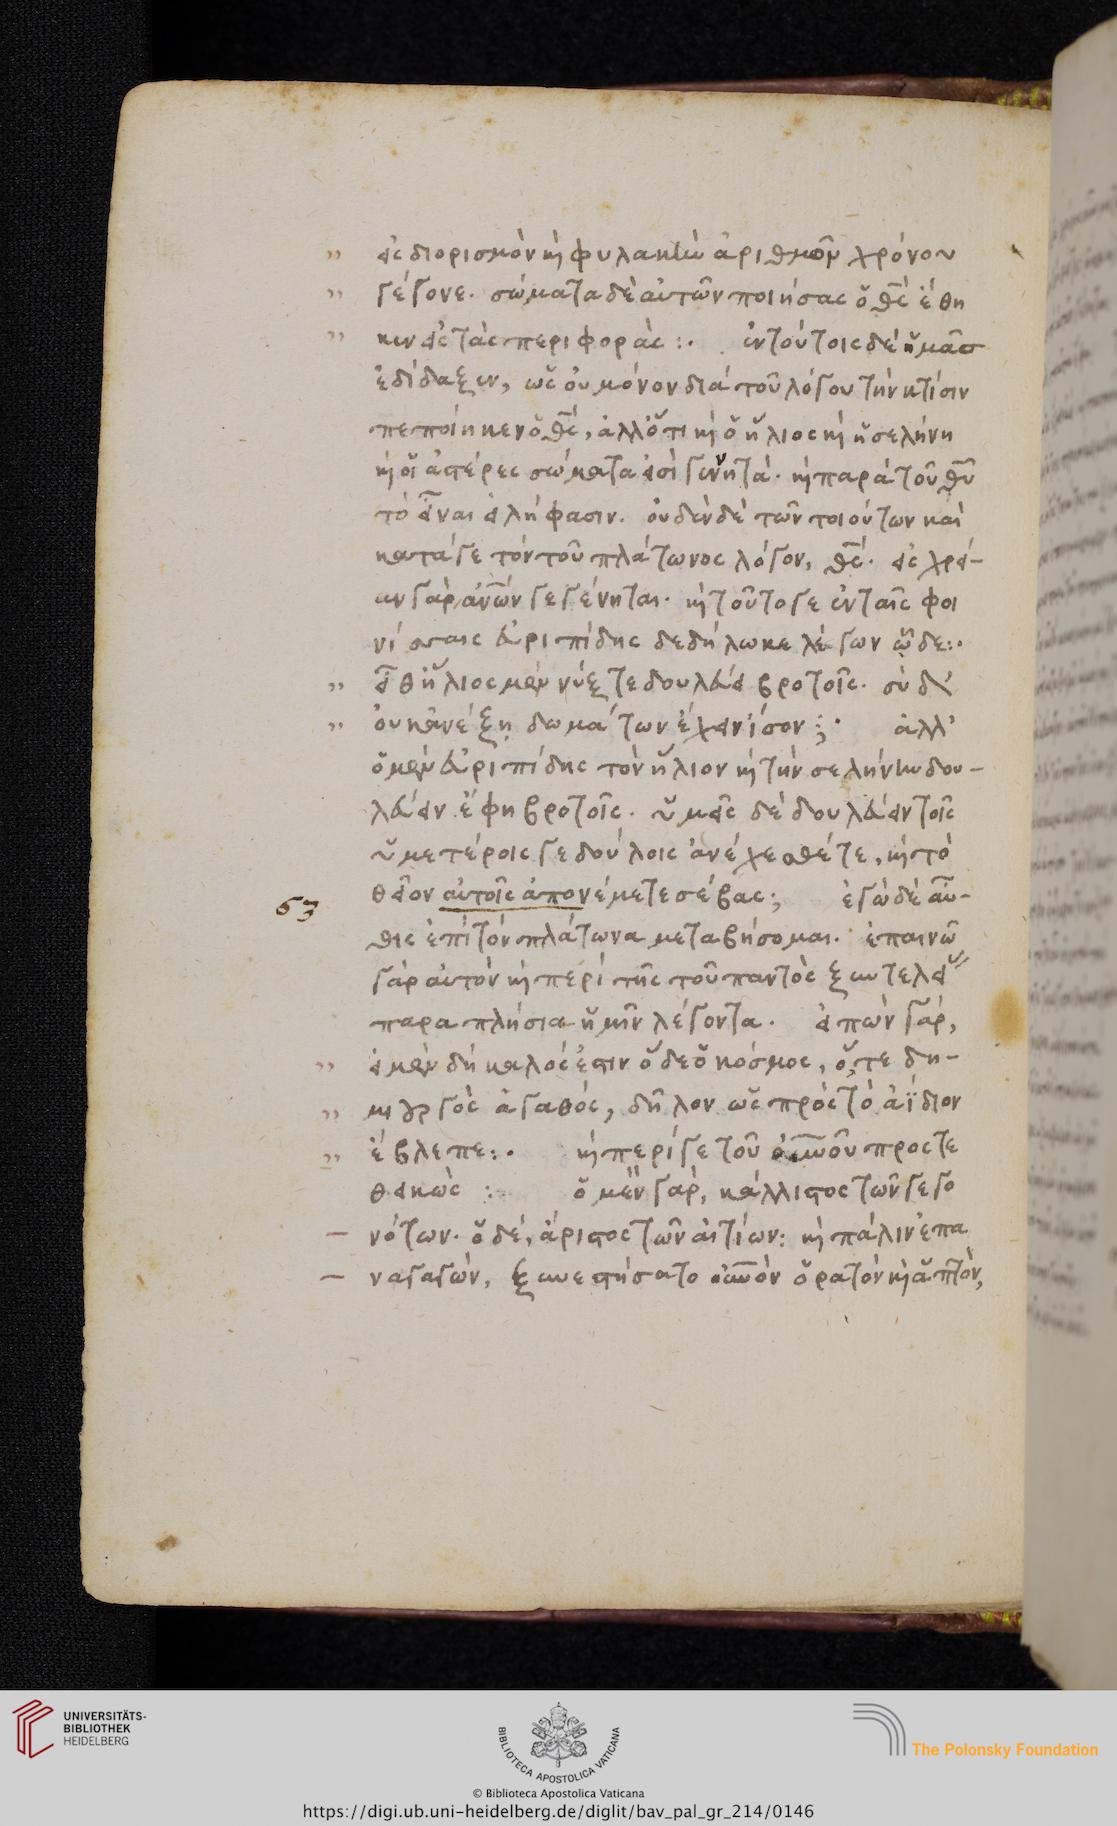 „ εἰς διορισμὸν καὶ φυλακὴν ἀριθμῶν χρόνου
„ γέγονε. σώματα δὲ αὐτῶν ποιήσας ὁ θς̄ ἔθη
„ κεν εἰς τὰς περιφοράς :· ἐν τούτοις δὲ ἡμᾶσ
ἐδίδαξεν, ὡς οὐ μόνον διὰ τοῦ λόγου τὴν κτίσιν
πεποίηκεν ὁ θς̄, ἀλλ' ὅτι καὶ ὁ ἥλιος καὶ ἡ σελήνη
καὶ οἱ ἀστέρες σώματα εἰσὶ γεννητά. καὶ παρὰ τοῦ θῡ
τὸ εἶναι εἰλήφασιν. οὐδὲν δὲ τῶν τοιούτων καὶ
κατά γε τὸν τοῦ πλάτωνος λόγον, θς̄. εἰς χρεί-
αν γὰρ ἀνω̄ν γεγένηται. καὶ τοῦτο γε ἐν ταῖς φοι
νίσσαις εὐριπίδης δεδήλωκε λέγων ὧδε :·
„ εἶθ' ἥλιος μὲν νύξ τε δουλεύει βροτοῖς. σὺ δ'
„ οὐκ ἀνέξῃ δωμάτων ἔχειν ἴσον ; · ἀλλ'
ὁ μὲν εὐριπίδης τὸν ἥλιον καὶ τὴν σελήνην δου-
λεύειν ἔφη βροτοῖς. ὑμεῖς δὲ δουλεύειν τοῖς
ὑμετέροις γε δούλοις ἀνέχεσθέ τε, καὶ τὸ
53 θεῖον αὐτοῖς ἀπονέμετε σέβας ; ἐγὼ δὲ αὖ-
θις ἐπὶ τὸν πλάτωνα μεταβήσομαι. ἐπαινῶ
γὰρ αὐτὸν καὶ περὶ τῆς τοῦ παντὸς ξυντελείας
παραπλήσια ἡμῖν λέγοντα. εἰπὼν γάρ,
„ εἰ μὲν δὴ καλός ἐστιν ὅδε ὁ κόσμος, ὅ,τε δη-
„ μιουργὸς ἀγαθός, δῆλον ὡς πρὸς τὸ ἀΐδιον
„ ἔβλεπε :· καὶ περί γε τοῦ οὐνοῦ προστε
θεικὼς : ὁ μὲν γὰρ, κάλλιστος τῶν γεγο
— νότων. ὁ δέ, ἄριστος τῶν αἰτίων : καὶ πάλιν ἐπα
— ναγαγών, ξυνεστήσατο οὐνὸν ὁρατὸν καὶ ἁπτὸν,
UNIVERSITÄTS-
BIBLIOTHEK
HEIDELBERG
BIBLIOTECA APOSTOLICA VATICANA
The Polonsky Foundation
© Biblioteca Apostolica Vaticana
https://digi.ub.uni-heidelberg.de/diglit/bav_pal_gr_214/0146